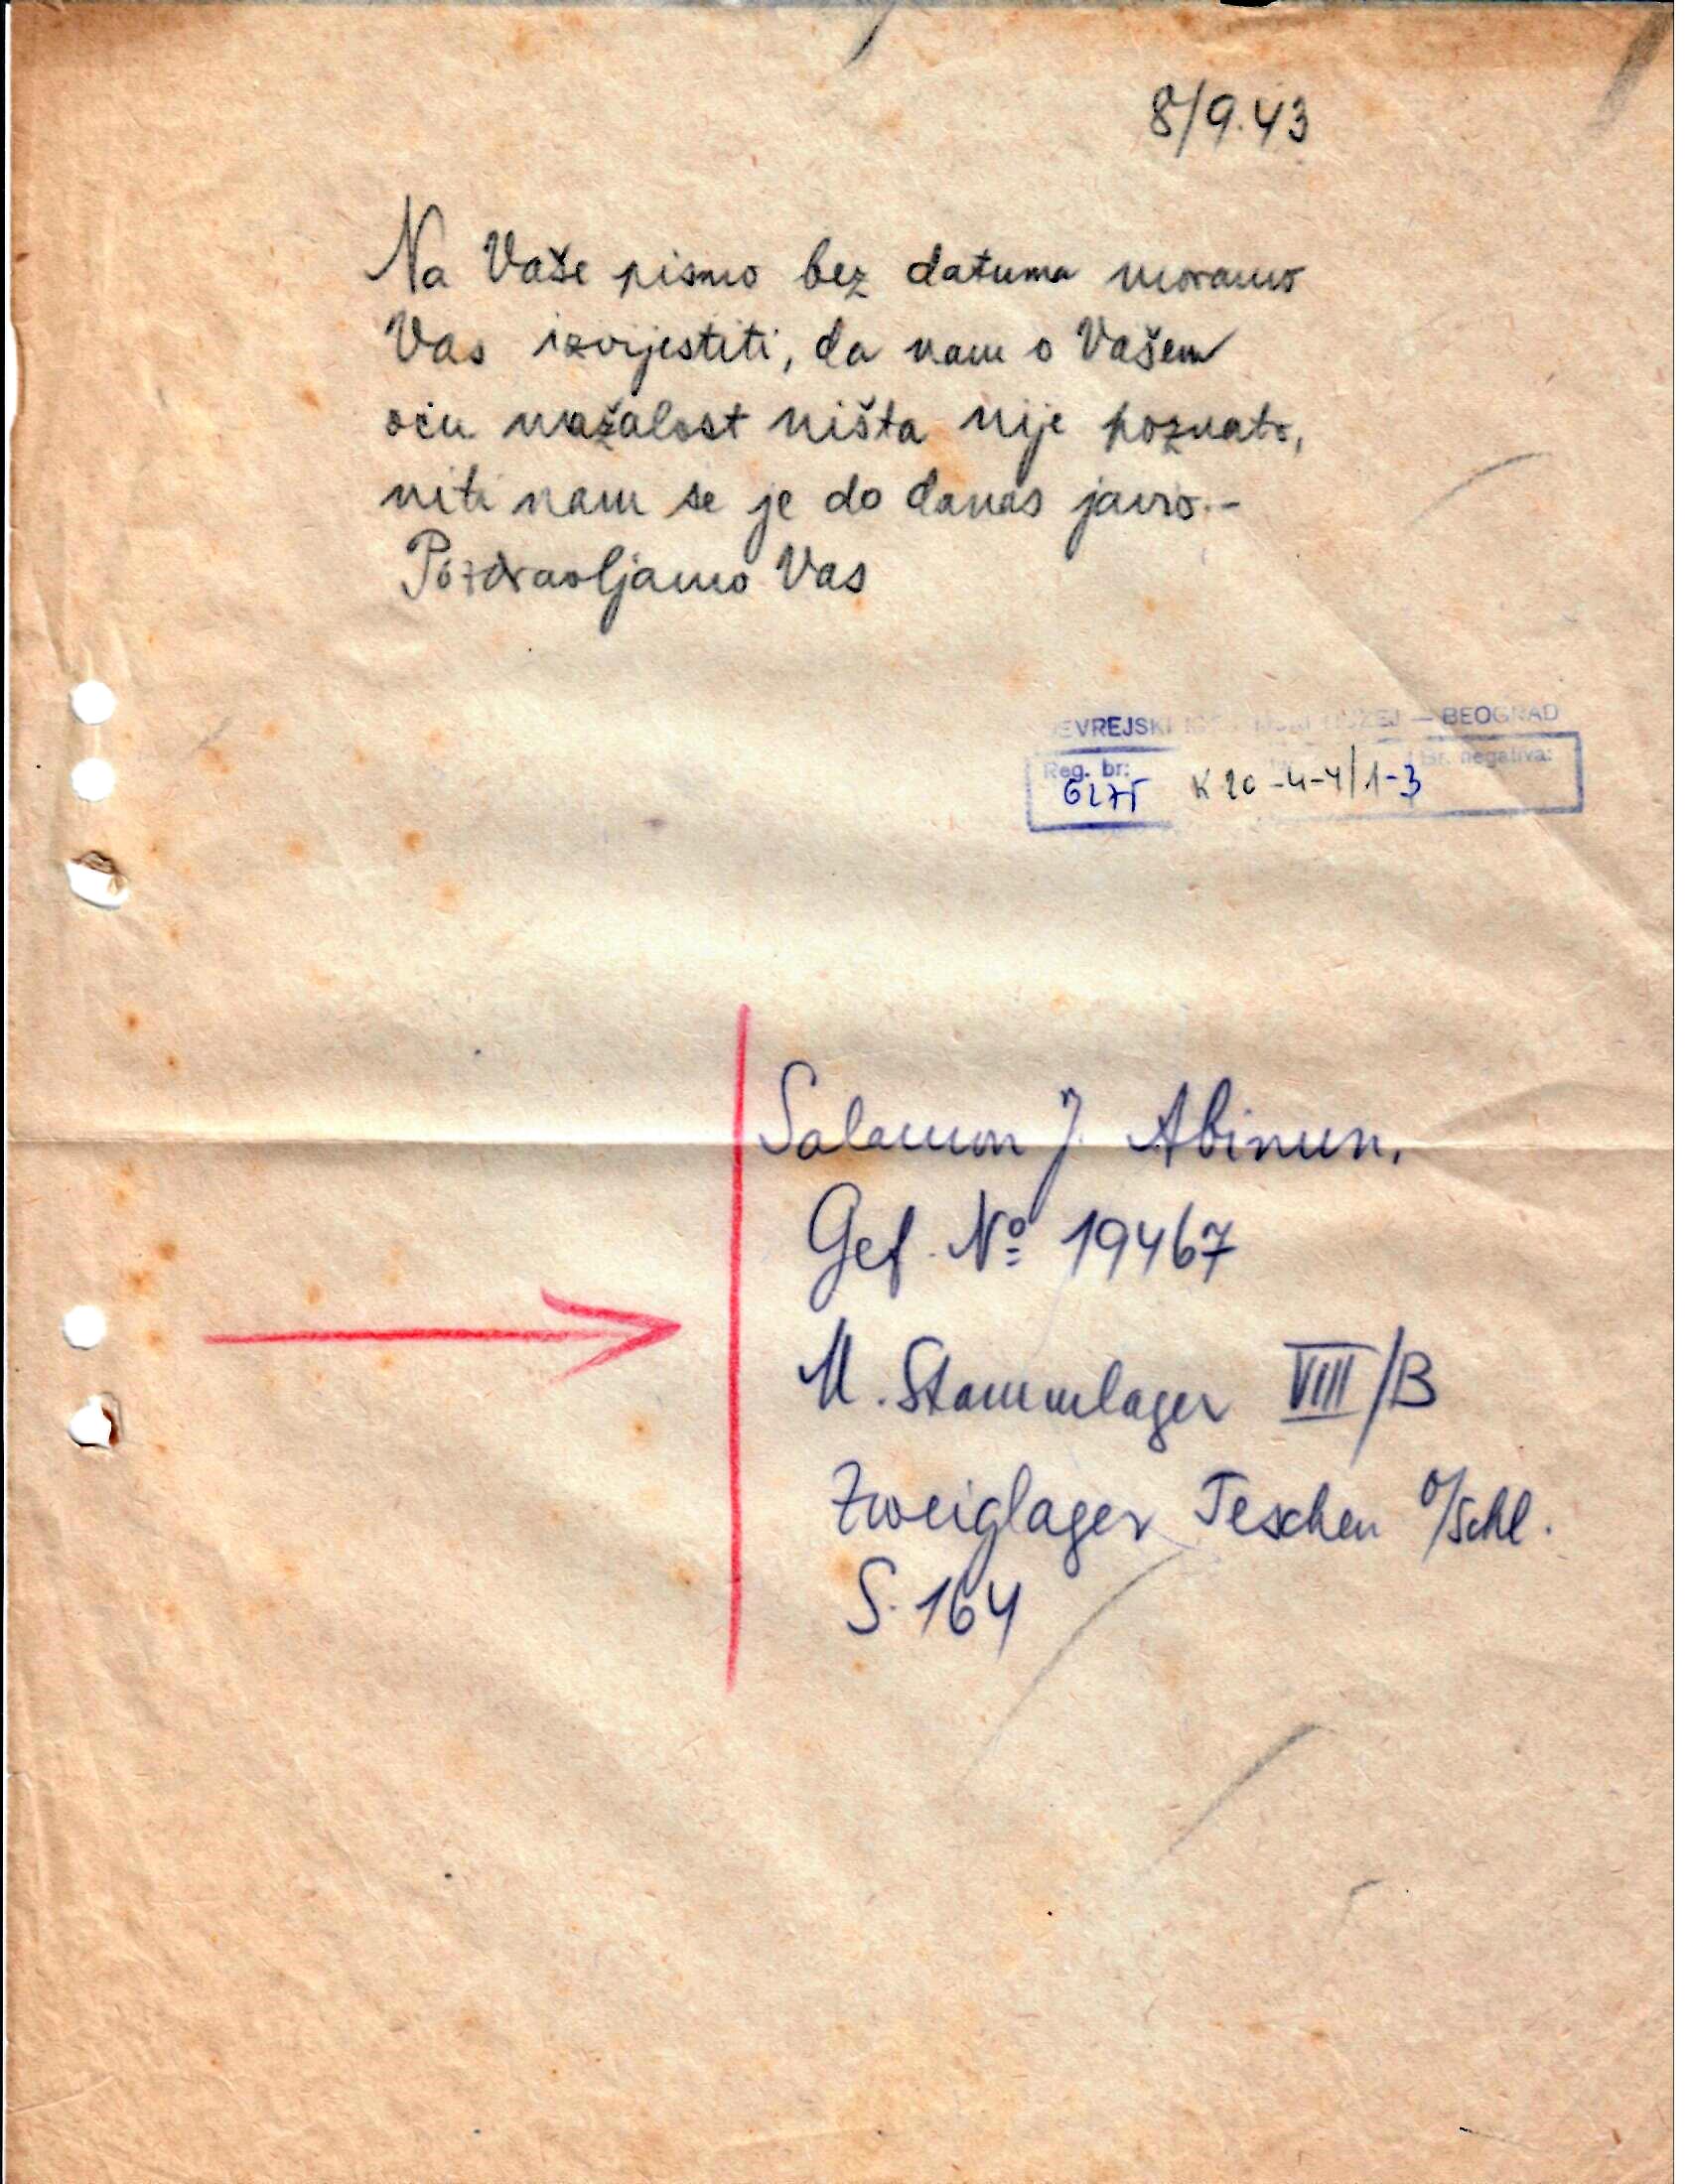 8/9.43
Na Vaše pismo bez datuma moramo
Vas izvijestiti, da nam o Vašem
ocu nažalost ništa nije poznato,
niti nam se je do danas javio.-
Pozdravljamo Vas
JEVREJSKI MUZEJ — BEOGRAD
Reg. br: Br. negativa:
K 20-4-4/1-3
Salamon J. Abinun.
Gef. Nº 19467
M. Stammlager VIII/B
Zweiglager Teschen O/Schl.
S. 164